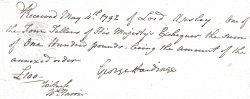 Received May 4th 1792 of Lord Onslow One of
the Four Tellers of His Majesty's Exchequer the sum
of One Hundred pounds: being the amount of the
annexed order
£100 George Hardinge
Witness
Wm